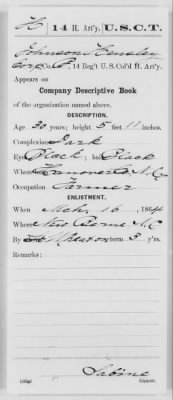 H 14 H. Art'y. U.S.C.T.
Johnson Hensley
Corp Co. B, 14 Reg't U. S. Col'd H. Art'y.
Appears on
Company Descriptive Book
of the organization named above.
DESCRIPTION.
Age 30 years; height 5 feet 11 inches.
Complexion Dark
Eyes Black; hair Black
Where born Hanover Co, N.C.
Occupation Farmer
ENLISTMENT.
When Mch 16, 1864
Where New Berne N.C.
By Wheaton; term 3 y'rs.
Remarks:
Sabine
Copyist.